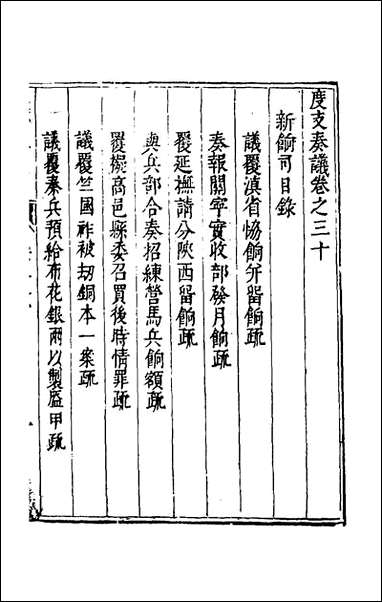 度支奏議卷之三十
新餉司目錄
議覆滇省協餉分留餉疏
奏報關寧實收部發月餉疏
覆延撫請分陝西留餉疏
與兵部合奏招練營馬兵餉額疏
覆擬高邑縣委召買後時情罪疏
議覆竺國祚被刼銅本一案疏
議覆秦兵預給布花銀兩以製盔甲疏